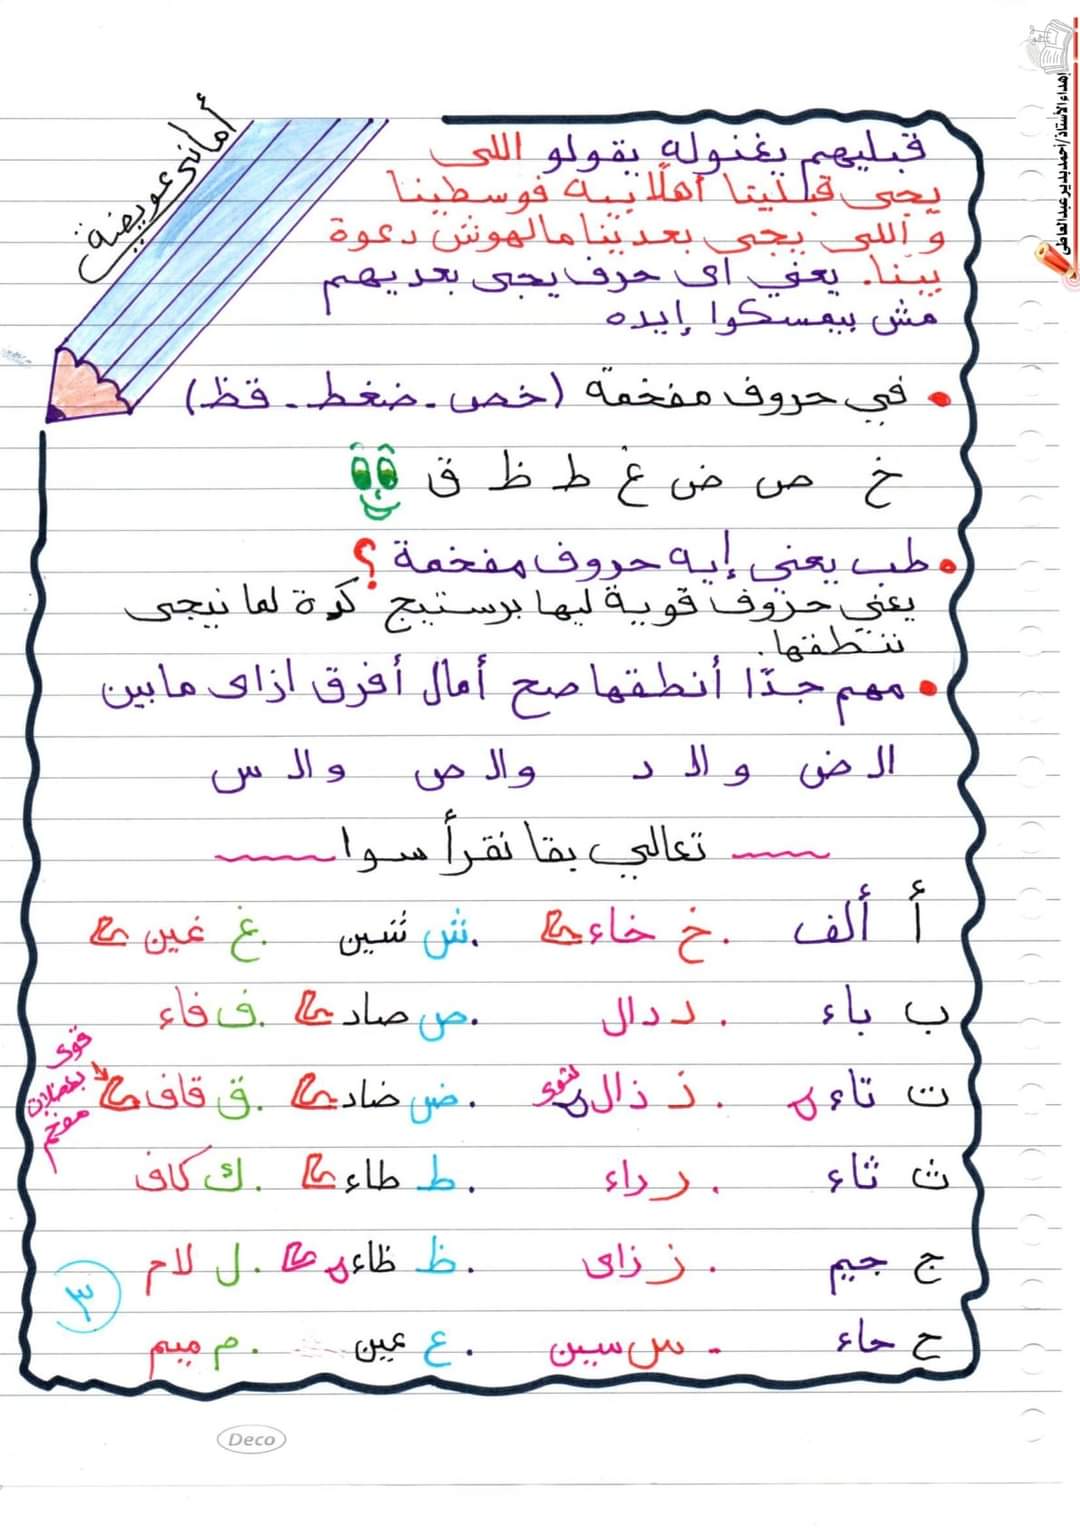 إهداء الأستاذ/ أحمد بدير عبدالعاطى
أمانى عويضة
قبليهم يغنوله يقولو اللى
يجى قبلينا أهلاً بيه فوسطينا
و اللى يجى بعدينا مالهوش دعوة
بينا. يعني اى حرف يجى بعديهم
مش بيمسكوا إيده
• في حروف مفخمة (خص - ضغط - قظ)
خ ص ض غ ط ظ ق
• طب يعنى إيه حروف مفخمة ؟
يعني حروف قوية ليها برستيج كدة لما نيجى
ننطقها.
• مهم جدًا أنطقها صح أمال أفرق ازاى مابين
الـ ض والـ د والـ ص والـ س
تعالي بقا نقرأ سوا
أ ألف . خ خاء . ش شين . غ غين
ب باء . د دال . ص صاد . ف فاء
ت تاء . ذ ذال لثوى . ض ضاد . ق قاف
قوى بعضلات مفخم
ث ثاء . ر راء . ط طاء . ك كاف
ج جيم . ز زاى . ظ ظاء . ل لام
ح حاء - س سين . ع عين . م ميم
٣
Deco